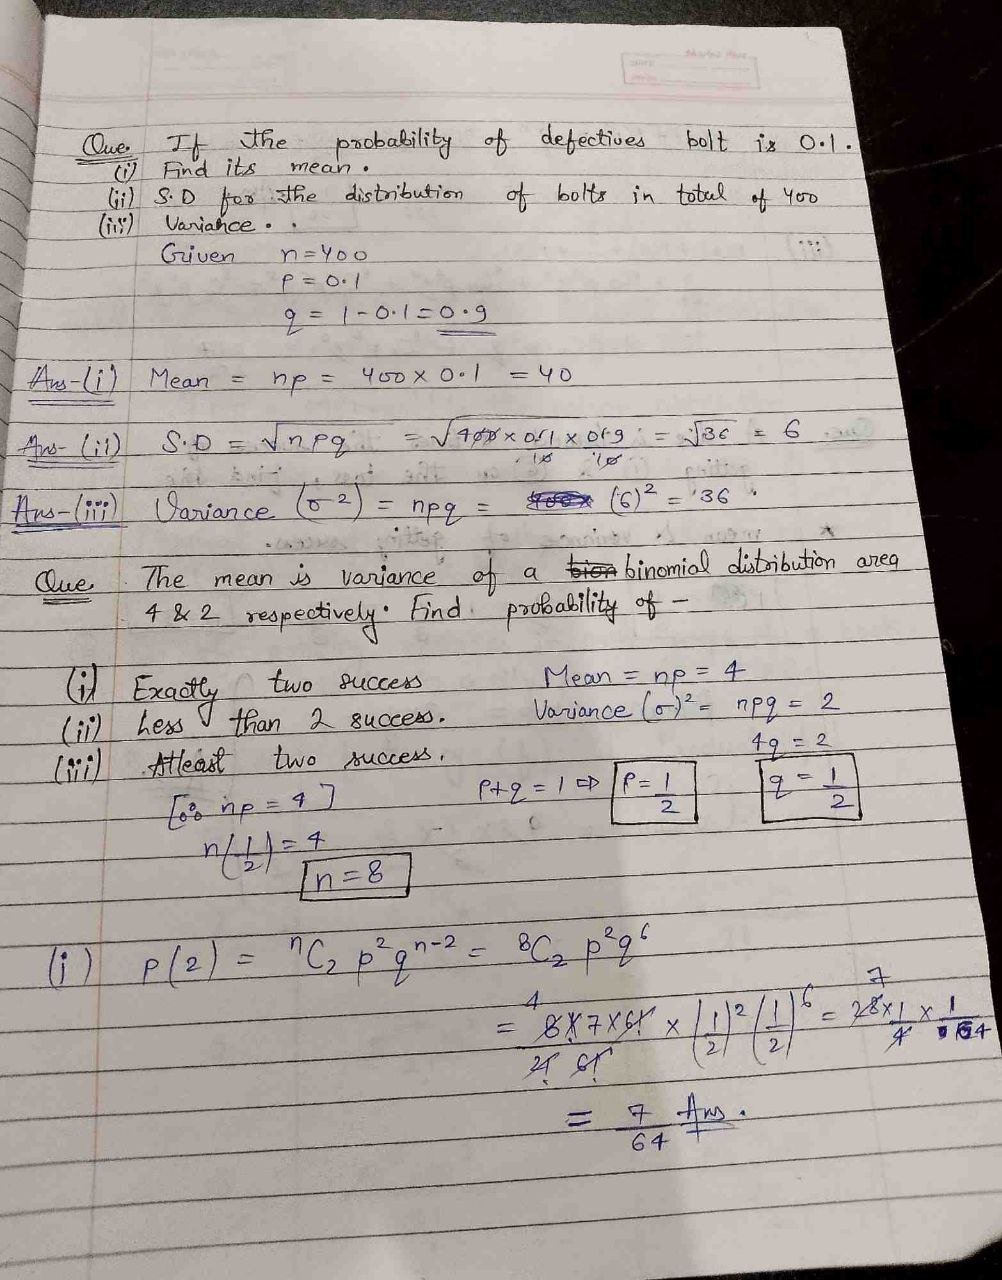 Que. If the probability of defectives bolt is 0.1.
(i) Find its mean.
(ii) S.D for the distribution of bolts in total of 400
(iii) Variance.
Given n=400
P = 0.1
q = 1-0.1=0.9
Ans-(i) Mean = np = 400 × 0.1 = 40
Ans-(ii) S.D = √npq = √400 × 0.1 × 0.9 = √36 = 6
10 10
Ans-(iii) Variance (σ²) = npq = (6)² = 36.
Que. The mean is variance of a bion binomial distribution area
4 & 2 respectively. Find probability of -
(i) Exactly two success Mean = np = 4
(ii) Less than 2 success. Variance (σ)² = npq = 2
(iii) Atleast two success. 4q = 2
[∵ np = 4] P+q = 1 ⇒ P = 1/2 q = 1/2
n(1/2) = 4
n=8
(i) P(2) = ⁿC₂ p² qⁿ⁻² = ⁸C₂ p² q⁶
= 4 8×7×6! / 2! 6! × (1/2)² (1/2)⁶ = 7 28×1/4 × 1/64
= 7/64 Ans.